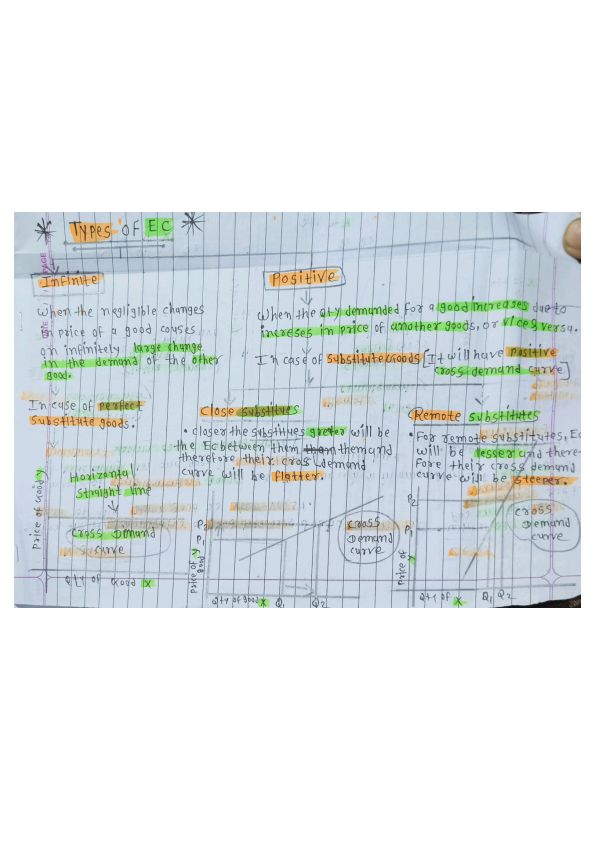 Types OF EC
Infinite
When the negligible changes
in price of a good causes
an infinitely large change
in the demand of the other
good.
In case of perfect
substitute goods.
Horizontal
straight line
Cross Demand
curve
Price of Good Y
Qty of Good X
Positive
When the qty demanded for a good increases due to
increses in price of another goods, or vices versa.
In case of substitute Goods [It will have positive
cross demand curve]
Close substitues
• closer the substitues greter will be
the Ec between them tham themand
therefore their cross demand
curve will be flatter.
Cross
Demand
curve
P2
P1
Price of Y
good
Qty of good X Q1 Q2
Remote substitutes
• For remote substitutes, Ec
will be lesser and there-
fore their cross demand
curve will be steeper.
Cross
Demand
curve
P2
P1
Price of Y
Qty of X Q1 Q2